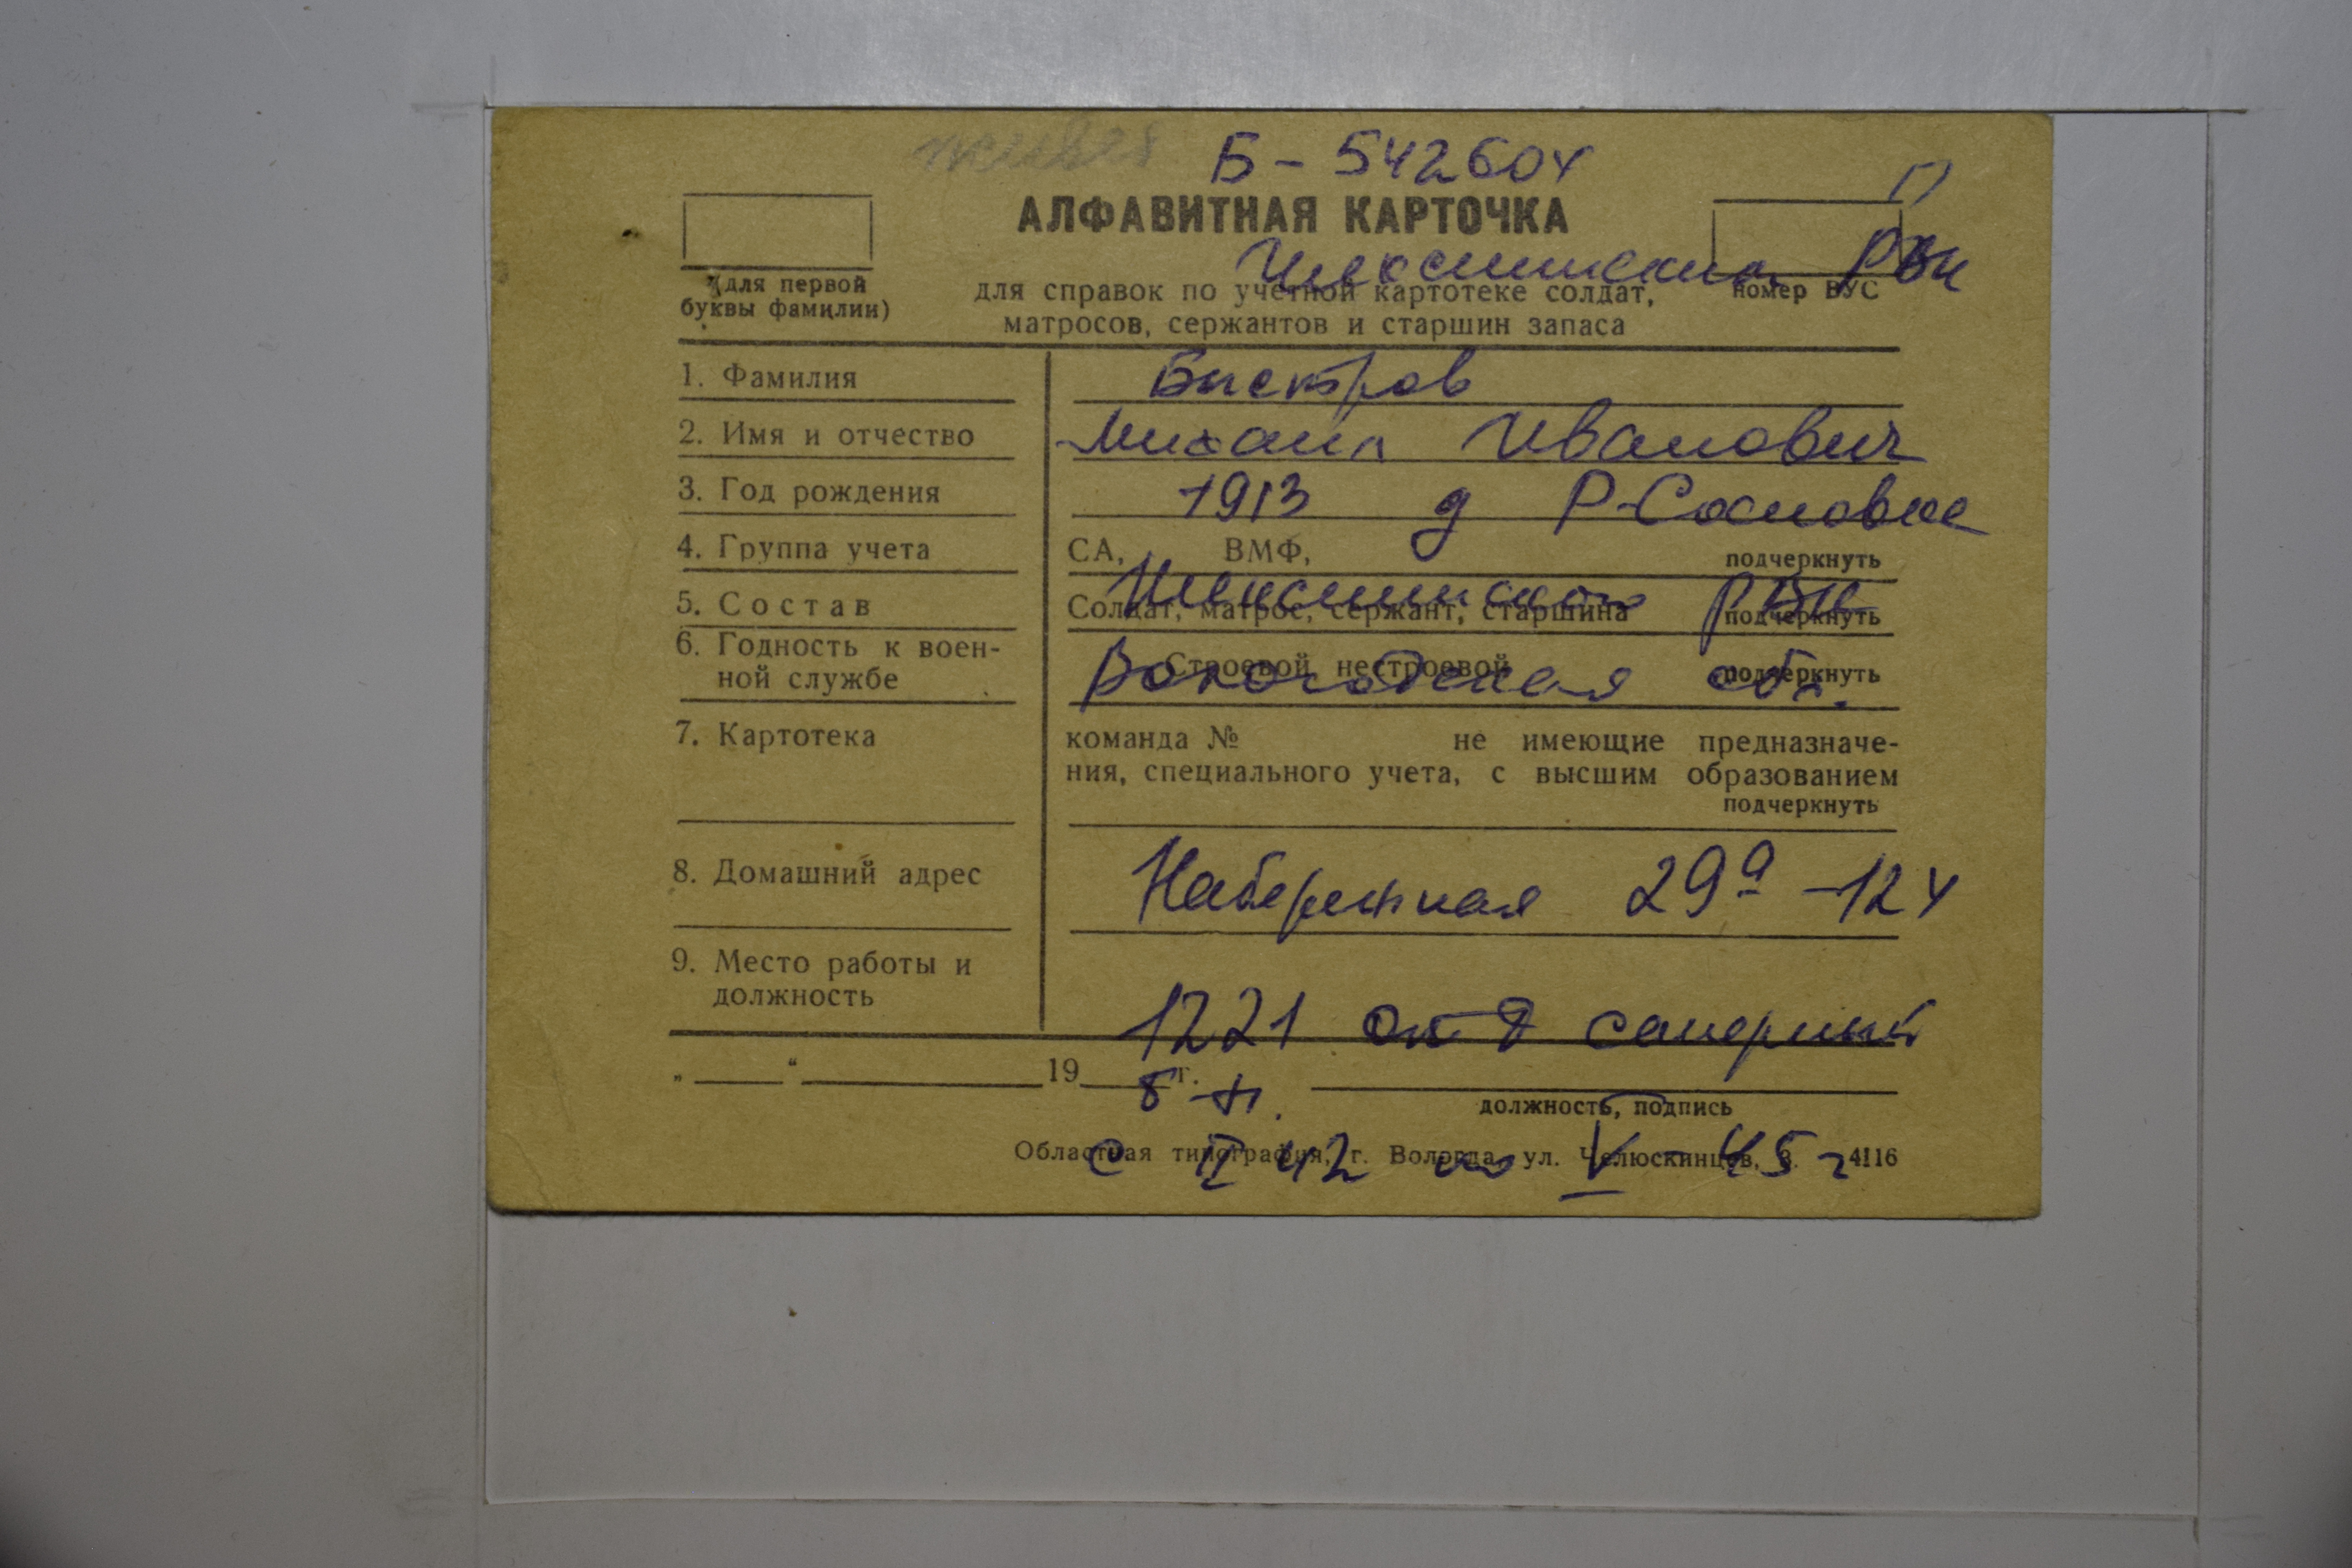 Б - 542604
АЛФАВИТНАЯ КАРТОЧКА
Чебсинским РВК
(для первой
буквы фамилии)
для справок по учетной картотеке солдат,
матросов, сержантов и старшин запаса
номер ВУС
1. Фамилия Быстров
2. Имя и отчество Михаил Иванович
3. Год рождения 1913 д Р-Сосновке
4. Группа учета СА, ВМФ, подчеркнуть
5. Состав Солдат, матрос, сержант, старшина подчеркнуть
РВК
6. Годность к воен-
ной службе Строевой нестроевой подчеркнуть
Вологодская обл.
7. Картотека команда № не имеющие предназначе-
ния, специального учета, с высшим образованием
подчеркнуть
8. Домашний адрес Набережная 29а - 124
9. Место работы и
должность
1221 отд саперный
„ “ 19 г.
б-н.
должность, подпись
Областная типография, г. Вологда, ул. Челюскинцев, 3. 4116
с II 42 по V - 45 г